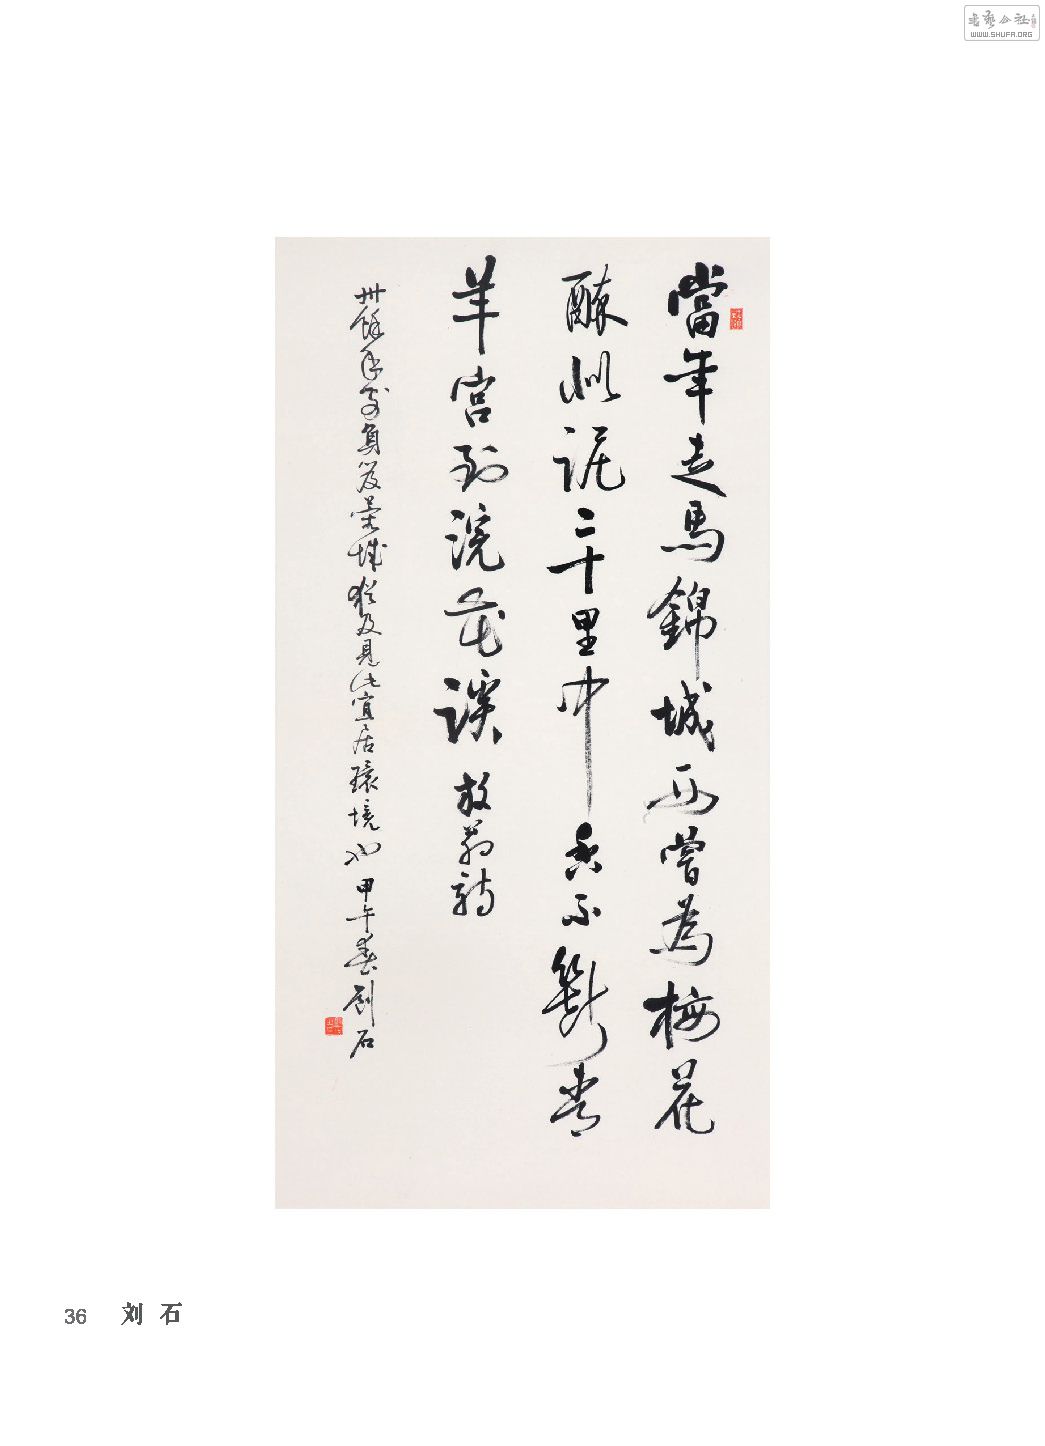 书艺公社
WWW.SHUFA.ORG
當年走馬錦城西曾為梅花
醉似泥二十里中香不斷青
羊宮到浣花溪 放翁詩
卅餘年前負笈蓉城猶及見此宜居環境也 甲午春劉石
36 刘石